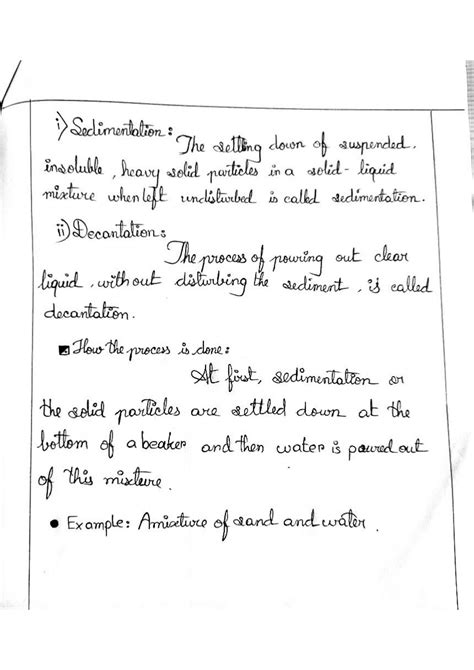 i) Sedimentation:
The settling down of suspended,
insoluble, heavy solid particles in a solid-liquid
mixture when left undisturbed is called sedimentation.
ii) Decantation:
The process of pouring out clear
liquid, without disturbing the sediment, is called
decantation.
How the process is done:
At first, sedimentation or
the solid particles are settled down at the
bottom of a beaker and then water is poured out
of this mixture.
• Example: A mixture of sand and water.